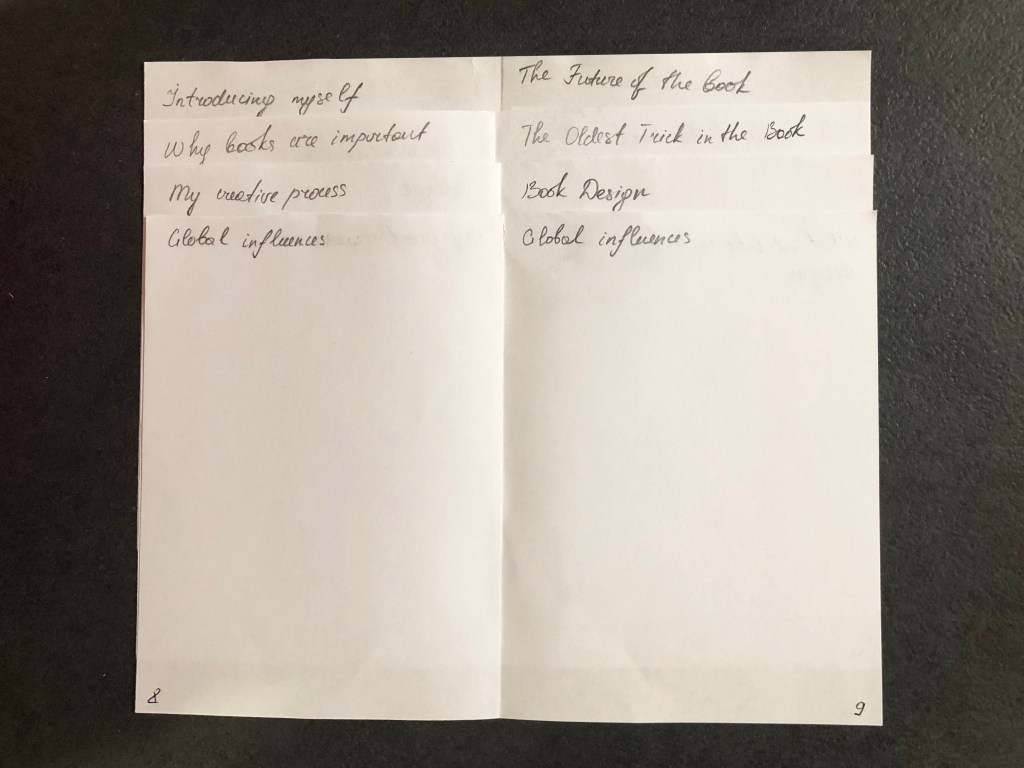 Introducing myself
Why books are important
My creative process
Global influences
8
The Future of the book
The Oldest Trick in the Book
Book Design
Global influences
9